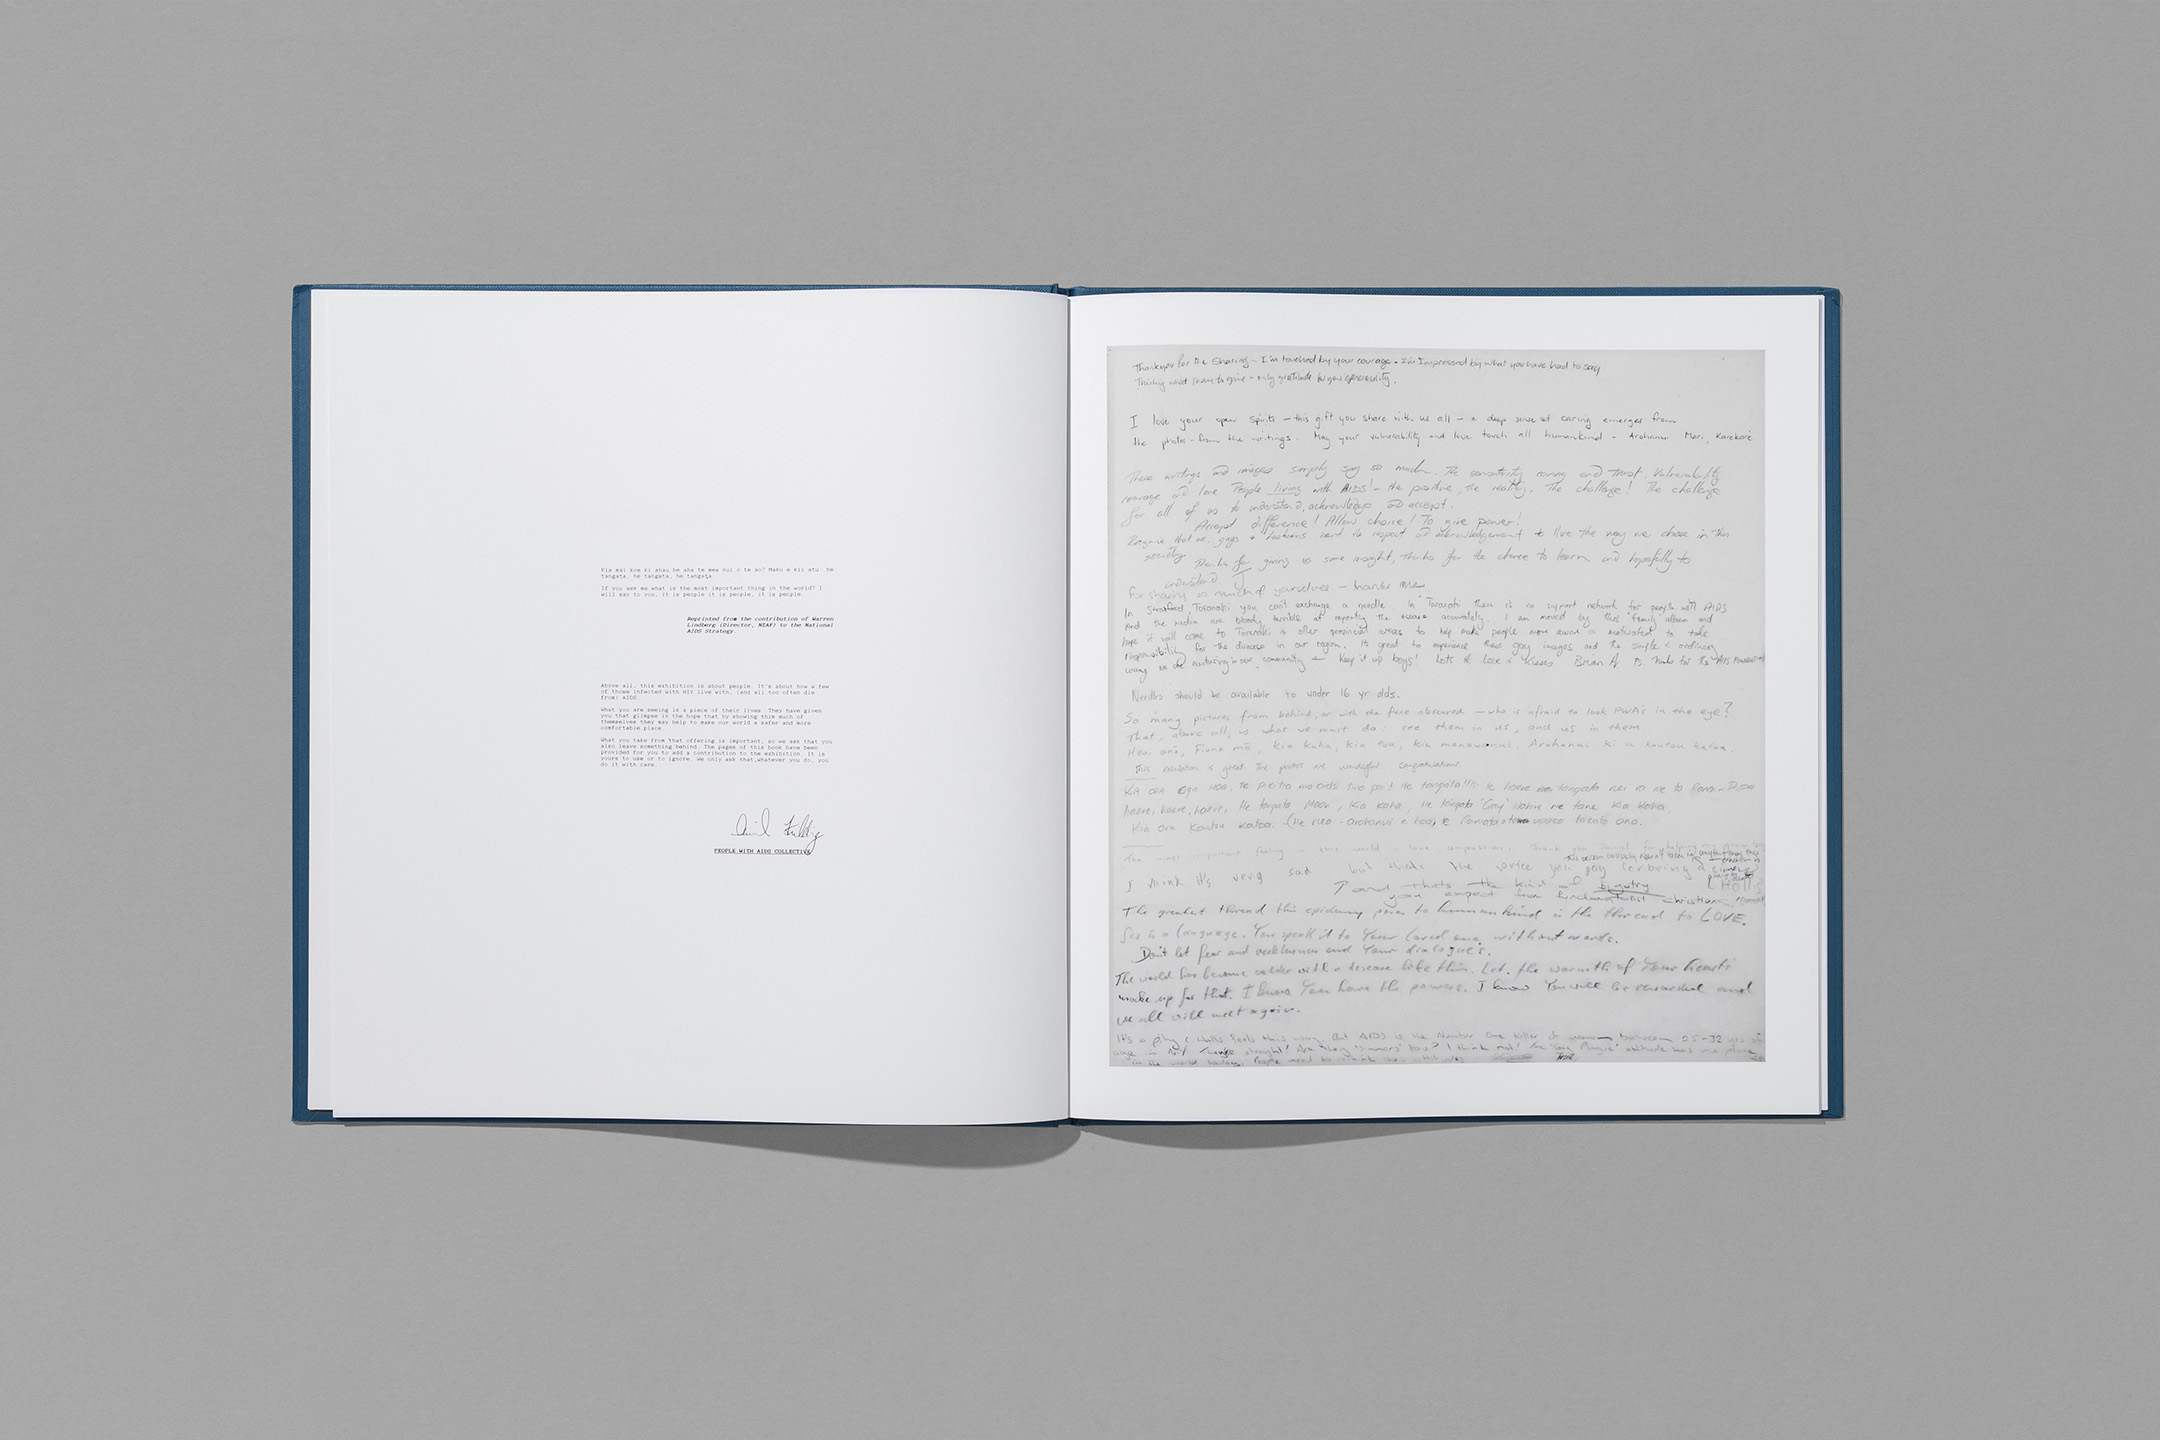 Kia mai koe ki ahau he aha te mea nui o te ao? Maku e kii atu: he
tangata, he tangata, he tangata.
If you ask me what is the most important thing in the world? I
will say to you, it is people it is people, it is people.
Reprinted from the contribution of Warren
Lindberg (Director, NZAF) to the National
AIDS Strategy.
Above all, this exhibition is about people. It's about how a few
of those infected with HIV live with, (and all too often die
from) AIDS.
What you are seeing is a piece of their lives. They have given
you that glimpse in the hope that by showing this much of
themselves they may help to make our world a safer and more
comfortable place.
What you take from that offering is important, so we ask that you
also leave something behind. The pages of this book have been
provided for you to add a contribution to the exhibition. It is
yours to use or to ignore. We only ask that, whatever you do, you
do it with care.
PEOPLE WITH AIDS COLLECTIVE
Thankyou for the sharing - I'm touched by your courage - I'm impressed by what you have had to say
Thinking what I have to give - only gratitude for your generosity.
I love your open spirits - this gift you share with us all - a deep sense of caring emerges from
the photos - from the writings. May your vulnerability and love touch all humankind - Arohanui Mari, Karekare.
These writings and images simply say so much. The sensitivity caring and trust. Vulnerability
courage and love. People living with AIDS! - the positive, the reality. The challenge! The challenge
for all of us to understand, acknowledge and accept.
Accept difference! Allow choice! To give power!
Recognise that we, gays & lesbians need the respect and acknowledgement to live the way we choose in this
society.
Thanks for giving us some insight, thanks for the chance to learn and hopefully to
understand.
For sharing so much of yourselves - thanks
In Stratford, Taranaki you can't exchange a needle. In Taranaki there is no support network for people with AIDS
And the media are bloody terrible at reporting the issue accurately. I am moved by this family album and
hope it will come to Taranaki & other provincial areas to help make people more aware & motivated to take
responsibility for the disease in our region. It's great to experience these gay images and the simple & ordinary
way we are nurturing in our community - Keep it up boys! Lots of Love & Kisses Brian A P.S. Thanks for the AIDS Foundation
Needles should be available to under 16 yr olds.
So many pictures from behind, or with the face obscured - who is afraid to look PWA's in the eye?
That, above all, is what we must do: see them in us, and us in them
Kia kaha, kia toa, kia manawanui. Arohanui ki a koutou katoa.
This exhibition is great. The photos are wonderful. Congratulations
haere, haere, haere. He tangata Maori, Kia kaha, He tangata 'Gay' Kia kaha.
Kia ora Koutou katoa.
The most important feeling in this world is love compassion. Thank you
I think it's very sad but thats the price you pay for being a sinner
and thats the kind of bigotry
you expect from fundamentalist christians
The greatest thread this epidemy poses to humankind is the thread to LOVE.
Sex is a language. You speak it to Your loved one, without words.
Don't let fear and recklessness end Your dialogue's.
The world has become colder with a desease like this. Let the warmth of Your hearts
make up for that. I know You have the powers. I know You will be rewarded and
we all will meet again.
It's a pity C Halls feels this way. But AIDS is the Number One killer of women between 25-32 yrs of
age in NY. They're straight! Are they 'sinners' too? I think not! The 'Gay Plague' attitude has no place
in the world today. People need to rethink their attitudes